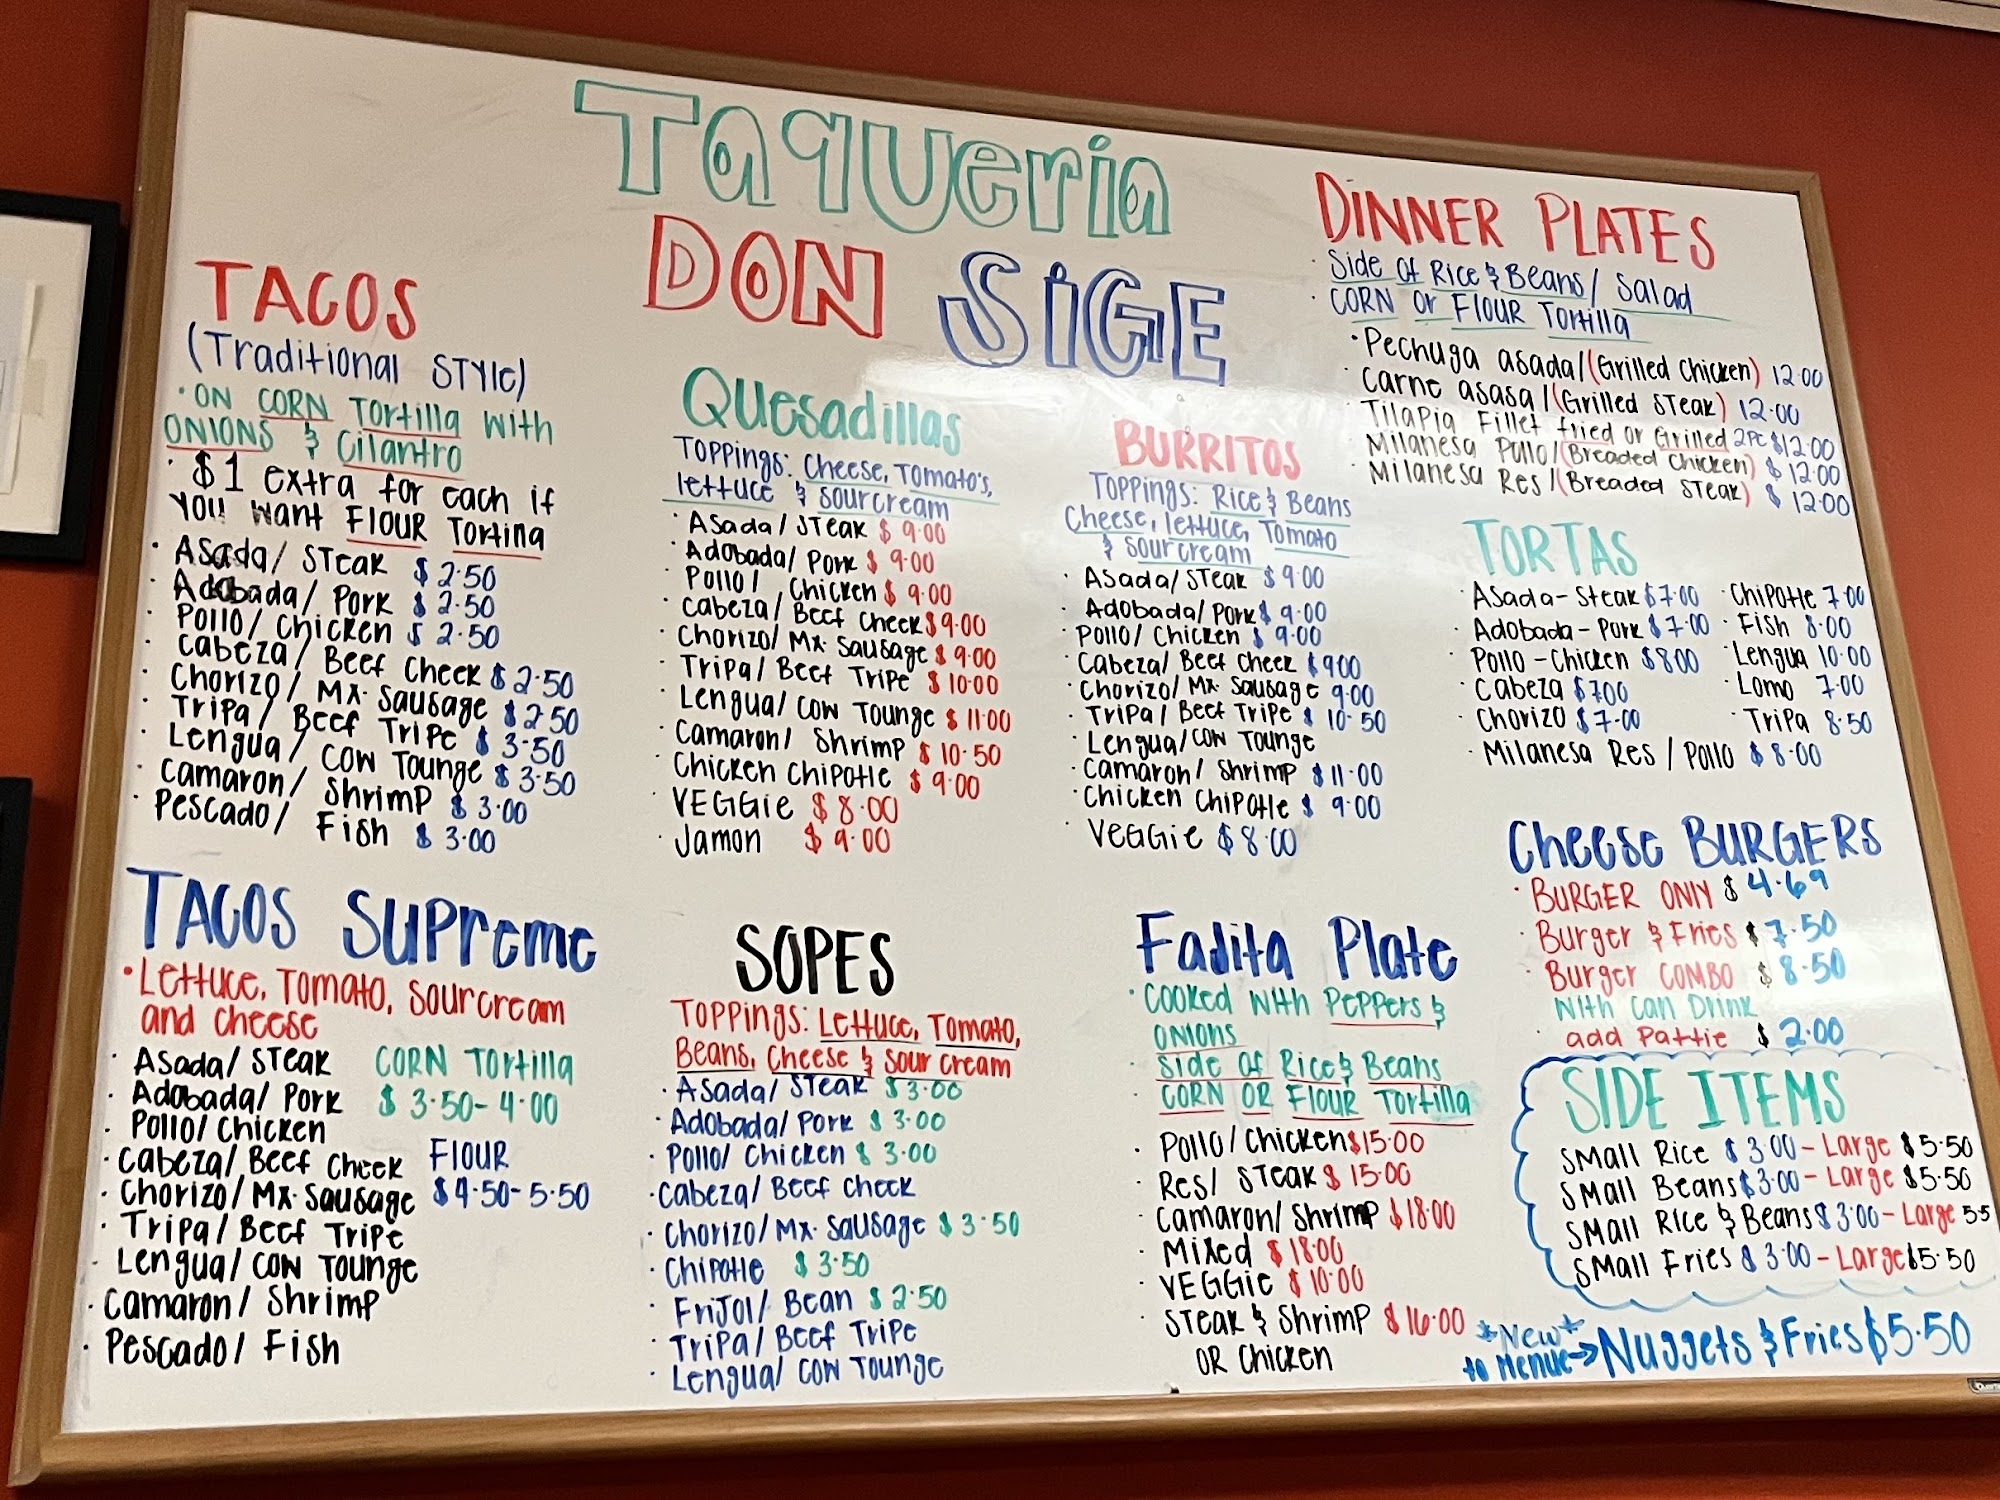 Taqueria
DON SIGE
TACOS
(Traditional STYle)
· ON CORN Tortilla with
ONIONS & Cilantro
· $1 extra for each if
You want FlOUR Tortina
· Asada/ STeak $2.50
· Adobada/ Pork $2.50
· Pollo/ Chicken $2.50
· Cabeza/ Beef Cheek $2.50
· Chorizo/ Mx. Sausage $2.50
· Tripa/ Beef Tripe $3.50
· Lengua/ COW Tounge $3.50
· Camaron/ Shrimp $3.00
· Pescado/ Fish $3.00
TACOS Supreme
· Lettuce, Tomato, Sourcream
and cheese
· Asada/ STeak
· Adobada/ Pork
· Pollo/ Chicken
· Cabeza/ Beef Cheek
· Chorizo/ Mx. Sausage
· Tripa/ Beef Tripe
· Lengua/ COW Tounge
· Camaron/ Shrimp
· Pescado/ Fish
CORN Tortilla
$3.50-4.00
FlOUR
$4.50-5.50
Quesadillas
Toppings: Cheese, Tomato's,
lettuce & Sourcream
· Asada/ STeak $9.00
· Adobada/ Pork $9.00
· Pollo/ Chicken $9.00
· Cabeza/ Beef Cheek $9.00
· Chorizo/ Mx. Sausage $9.00
· Tripa/ Beef Tripe $10.00
· Lengua/ COW Tounge $11.00
· Camaron/ Shrimp $10.50
· Chicken Chipotle $9.00
· VEGGie $8.00
· Jamon $9.00
SOPES
Toppings: Lettuce, Tomato,
Beans, Cheese & Sour Cream
· Asada/ STeak $3.00
· Adobada/ Pork $3.00
· Pollo/ Chicken $3.00
· Cabeza/ Beef Cheek
· Chorizo/ Mx. Sausage $3.50
· Chipotle $3.50
· Frijol/ Bean $2.50
· Tripa/ Beef Tripe
· Lengua/ COW Tounge
BURRITOS
Toppings: Rice & Beans
Cheese, lettuce, Tomato
& Sourcream
· Asada/ STeak $9.00
· Adobada/ Pork $9.00
· Pollo/ Chicken $9.00
· Cabeza/ Beef Cheek $900
· Chorizo/ Mx. Sausage 9.00
· Tripa/ Beef Tripe $10.50
· Lengua/ COW Tounge
· Camaron/ Shrimp $11.00
· Chicken Chipotle $9.00
· VeGGie $8.00
Fajita Plate
· Cooked with Peppers &
ONIONS
· Side of Rice & Beans
· CORN OR FlOUR Tortilla
· Pollo/ Chicken $15.00
· Res/ STeak $15.00
· Camaron/ Shrimp $18.00
· Mixed $18.00
· VEGGie $10.00
· STeak & Shrimp $16.00
OR Chicken
DINNER PLATES
· Side Of Rice & Beans/ Salad
· CORN Or FlOUR Tortilla
· Pechuga asada/(Grilled Chicken) 12.00
· Carne asasa/(Grilled STeak) 12.00
· Tilapia Fillet fried or Grilled 2PC $12.00
· Milanesa Pollo/(Breaded Chicken) $12.00
· Milanesa Res/(Breaded STeak) $12.00
TORTAS
· Asada-Steak $7.00
· Adobada-Pork $7.00
· Pollo-Chicken $800
· Cabeza $700
· Chorizo $7.00
· Milanesa Res / Pollo $8.00
· Chipotle 7.00
· Fish 8.00
· Lengua 10.00
· Lomo 7.00
· Tripa 8.50
Cheese BURGERS
· BURGER ONlY $4.69
· Burger & Fries $7.50
· Burger COMBO $8.50
With Can Drink
add Pattie $2.00
SIDE ITEMS
SMall Rice $3.00-Large $5.50
SMall Beans $3.00-Large $5.50
SMall Rice & Beans $3.00-Large 5.5
SMall Fries $3.00-Large $5.50
*New*
to Menue→Nuggets & Fries $5.50